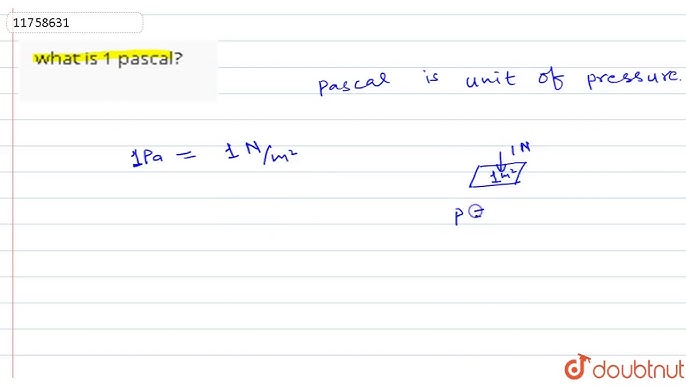 11758631
what is 1 pascal?
pascal is unit of pressure.
1Pa = 1 N/m²
1 N
1 m²
P =
doubtnut